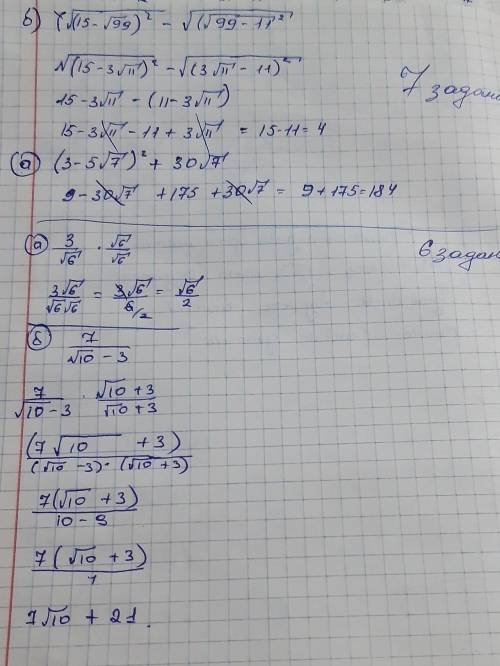 б) (√(15-√99)² - √(√99-11²)
√(15-3√11)² - √(3√11-11)²
15-3√11 - (11-3√11)
7 задани
15-3√11-11+3√11 = 15-11=4
(а) (3-5√7)²+ 30√7
9-30√7 +175 +30√7 = 9+175=184
(а) 3/√6 · √6/√6
6 задан
3√6/√6√6 = 3√6/6/2 = √6/2
(б) 7/√10-3
7/√10-3 · √10+3/√10+3
(7√10 +3)/(√10-3)·(√10+3)
7(√10+3)/10-9
7(√10+3)/1
7√10 + 21.